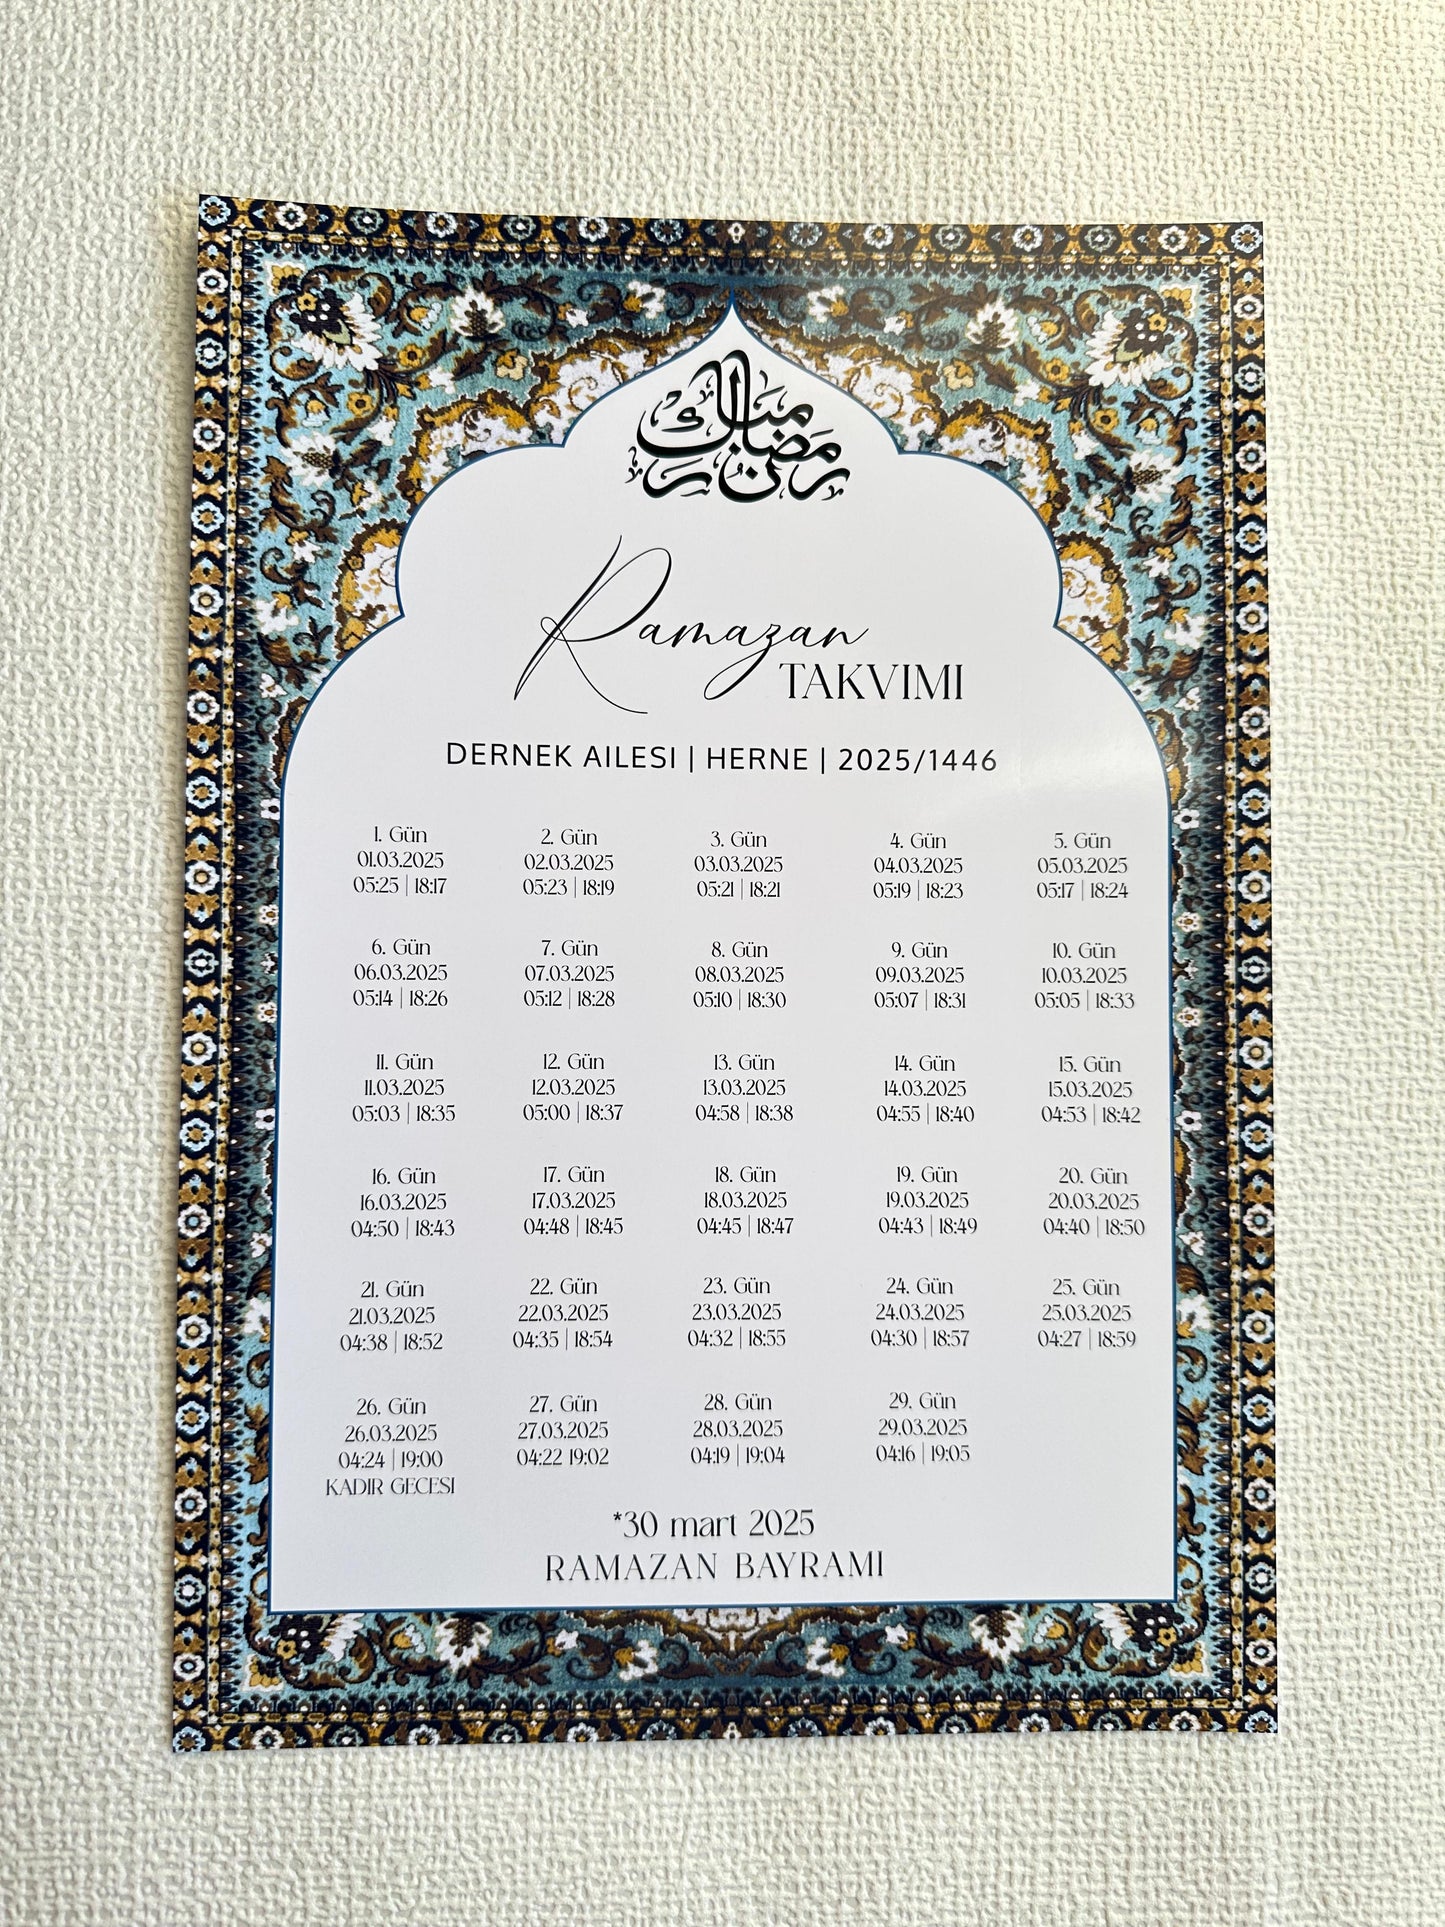 رمضان مبارك
Ramazan
TAKVIMI
DERNEK AILESI | HERNE | 2025/1446
1. Gün 2. Gün 3. Gün 4. Gün 5. Gün
01.03.2025 02.03.2025 03.03.2025 04.03.2025 05.03.2025
05:25 | 18:17 05:23 | 18:19 05:21 | 18:21 05:19 | 18:23 05:17 | 18:24
6. Gün 7. Gün 8. Gün 9. Gün 10. Gün
06.03.2025 07.03.2025 08.03.2025 09.03.2025 10.03.2025
05:14 | 18:26 05:12 | 18:28 05:10 | 18:30 05:07 | 18:31 05:05 | 18:33
11. Gün 12. Gün 13. Gün 14. Gün 15. Gün
11.03.2025 12.03.2025 13.03.2025 14.03.2025 15.03.2025
05:03 | 18:35 05:00 | 18:37 04:58 | 18:38 04:55 | 18:40 04:53 | 18:42
16. Gün 17. Gün 18. Gün 19. Gün 20. Gün
16.03.2025 17.03.2025 18.03.2025 19.03.2025 20.03.2025
04:50 | 18:43 04:48 | 18:45 04:45 | 18:47 04:43 | 18:49 04:40 | 18:50
21. Gün 22. Gün 23. Gün 24. Gün 25. Gün
21.03.2025 22.03.2025 23.03.2025 24.03.2025 25.03.2025
04:38 | 18:52 04:35 | 18:54 04:32 | 18:55 04:30 | 18:57 04:27 | 18:59
26. Gün 27. Gün 28. Gün 29. Gün
26.03.2025 27.03.2025 28.03.2025 29.03.2025
04:24 | 19:00 04:22 19:02 04:19 | 19:04 04:16 | 19:05
KADIR GECESI
*30 mart 2025
RAMAZAN BAYRAMI